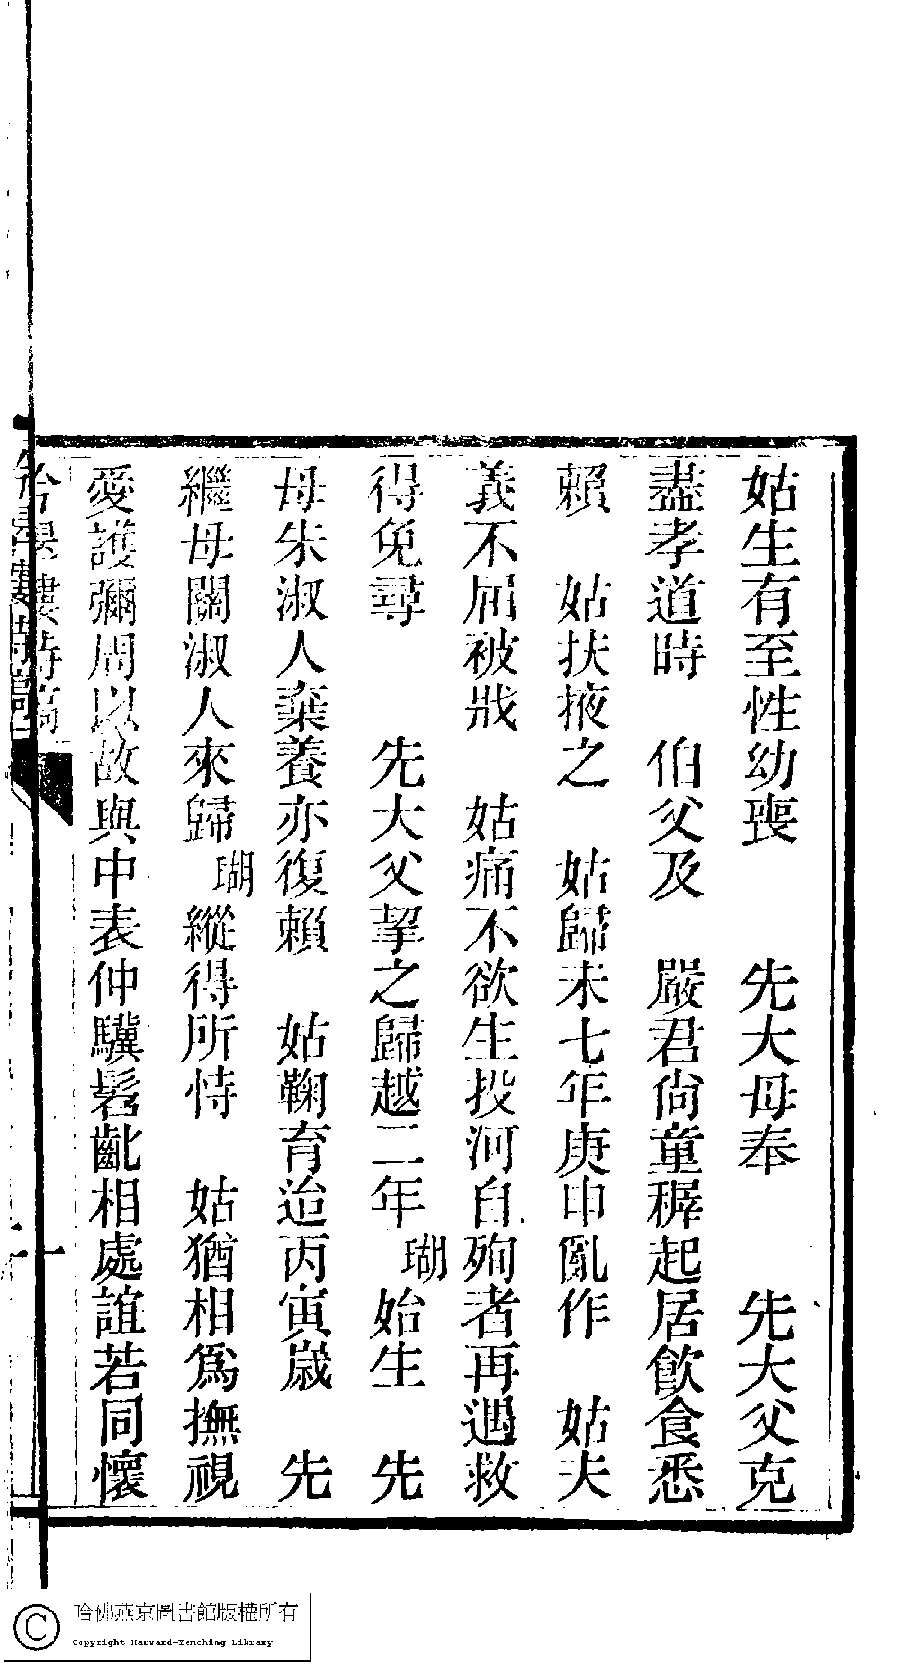 姑生有至性幼喪　　先大母奉　　先大父克
盡孝道時　伯父及　嚴君尙童穉起居飮食悉
賴　姑扶掖之　姑歸未七年庚申亂作　姑夫
義不屈被戕　姑痛不欲生投河自殉者再遇救
得免尋　　先大父挈之歸越二年瑚始生　先
母朱淑人棄養亦復賴　姑鞠育迨丙寅歲　先
繼母關淑人來歸瑚縱得所恃　姑猶相爲撫視
愛護彌周以故與中表仲驥髫齔相處誼若同懷
哈佛燕京圖書館版權所有
Copyright Harvard-Yenching Library